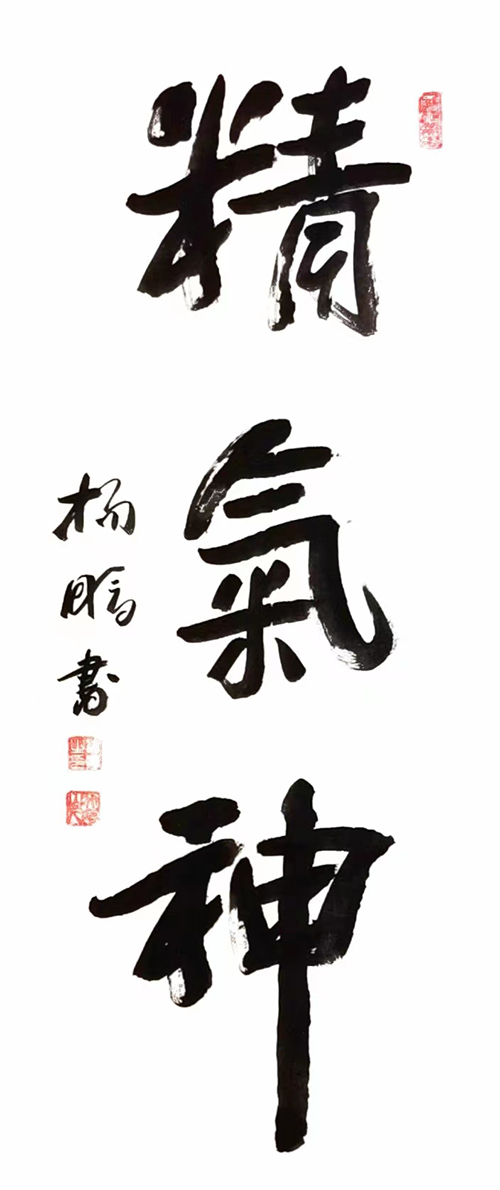 精氣神
杨鹏書